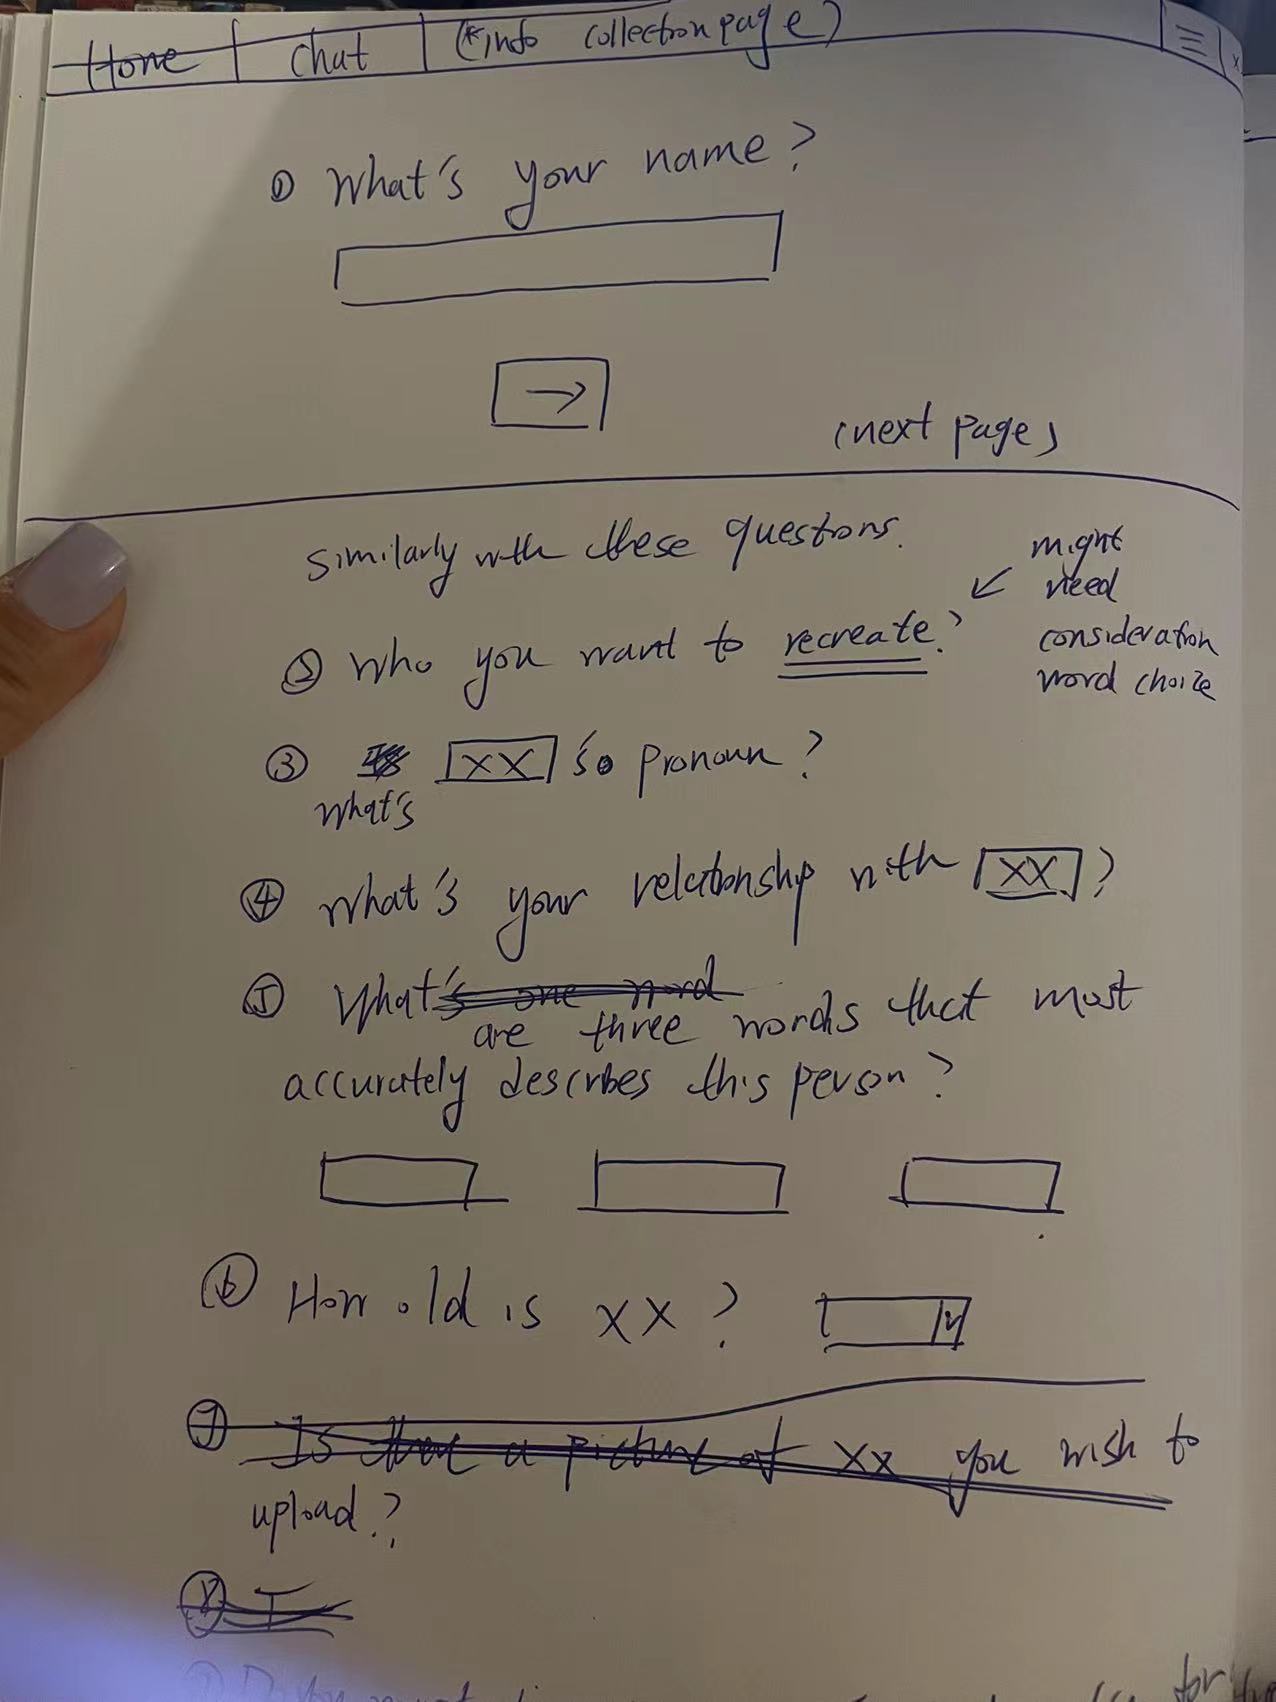 Home | Chat | (*info collection page)
① What's your name?
→
(next page)
Similarly with these questions.
might
need
consideration
word choice
② Who you want to recreate?
③ What's XX's pronoun?
④ What's your relationship with XX?
⑤ What's one word
are three words that most
accurately describes this person?
⑥ How old is XX?
⑦ Is there a picture of XX you wish to
upload?
⑧ I